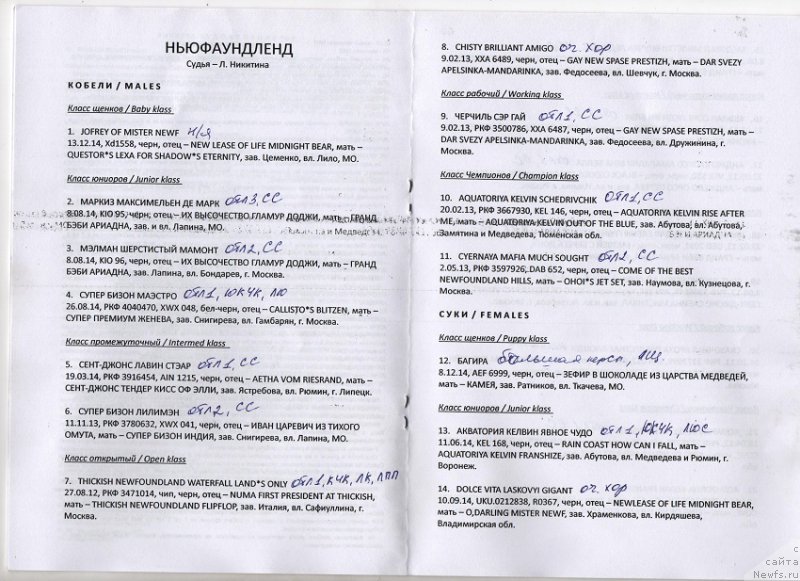 НЬЮФАУНДЛЕНД
Судья – Л. Никитина
КОБЕЛИ / MALES
Класс щенков / Baby klass
1. JOFREY OF MISTER NEWF н/я
13.12.14, Xd1558, черн, отец – NEW LEASE OF LIFE MIDNIGHT BEAR, мать –
QUESTOR*S LEXA FOR SHADOW*S ETERNITY, зав. Цеменко, вл. Лило, МО.
Класс юниоров / Junior klass
2. МАРКИЗ МАКСИМЕЛЬЕН ДЕ МАРК отл3, СС
8.08.14, KIO 95, черн, отец – ИХ ВЫСОЧЕСТВО ГЛАМУР ДОДЖИ, мать – ГРАНД
БЭБИ АРИАДНА, зав. и вл. Лапина, МО.
3. МЭЛМАН ШЕРСТИСТЫЙ МАМОНТ отл2, СС
8.08.14, KIO 96, черн, отец – ИХ ВЫСОЧЕСТВО ГЛАМУР ДОДЖИ, мать – ГРАНД
БЭБИ АРИАДНА, зав. Лапина, вл. Бондарев, г. Москва.
4. СУПЕР БИЗОН МАЭСТРО отл1, ЮКЧК, ЛЮ
26.08.14, РКФ 4040470, XWX 048, бел-черн, отец – CALLISTO*S BLITZEN, мать –
СУПЕР ПРЕМИУМ ЖЕНЕВА, зав. Снигирева, вл. Гамбарян, г. Москва.
Класс промежуточный / Intermed klass
5. СЕНТ-ДЖОНС ЛАВИН СТЭАР отл1, СС
19.03.14, РКФ 3916454, AIN 1215, черн, отец – AETHA VOM RIESRAND, мать –
СЕНТ-ДЖОНС ТЕНДЕР КИСС ОФ ЭЛЛИ, зав. Ястребова, вл. Рюмин, г. Липецк.
6. СУПЕР БИЗОН ЛИЛИМЭН отл2, СС
11.11.13, РКФ 3780632, XWX 041, черн, отец – ИВАН ЦАРЕВИЧ ИЗ ТИХОГО
ОМУТА, мать – СУПЕР БИЗОН ИНДИЯ, зав. Снигирева, вл. Лапина, МО.
Класс открытый / Open klass
7. THICKISH NEWFOUNDLAND WATERFALL LAND*S ONLY отл1, КЧК, ЛК, ЛПП
27.08.12, РКФ 3471014, чип, черн, отец – NUMA FIRST PRESIDENT AT THICKISH,
мать – THICKISH NEWFOUNDLAND FLIPFLOP, зав. Италия, вл. Сафиуллина, г.
Москва.
8. CHISTY BRILLIANT AMIGO оч. хор
9.02.13, XXA 6489, черн, отец – GAY NEW SPASE PRESTIZH, мать – DAR SVEZY
APELSINKA-MANDARINKA, зав. Федосеева, вл. Шевчук, г. Москва.
Класс рабочий / Working klass
9. ЧЕРЧИЛЬ СЭР ГАЙ отл1, СС
9.02.13, РКФ 3500786, XXA 6487, черн, отец – GAY NEW SPASE PRESTIZH, мать –
DAR SVEZY APELSINKA-MANDARINKA, зав. Федосеева, вл. Дружинина, г.
Москва.
Класс Чемпионов / Champion klass
10. AQUATORIYA KELVIN SCHEDRIVCHIK отл1, СС
20.02.13, РКФ 3667930, KEL 146, черн, отец – AQUATORIYA KELVIN RISE AFTER
ME, мать – AQUATORIYA KELVIN OUT OF THE BLUE, зав. Абутова, вл. Абутова,
Замятина и Медведева, Тюменская обл.
11. CYERNAYA MAFIA MUCH SOUGHT отл2, СС
2.05.13, РКФ 3597926, DAB 652, черн, отец – COME OF THE BEST
NEWFOUNDLAND HILLS, мать – OHOI*S JET SET, зав. Наумова, вл. Кузнецова, г.
Москва.
СУКИ / FEMALES
Класс щенков / Puppy klass
12. БАГИРА большая персп., ЛЩ
8.12.14, AEF 6999, черн, отец – ЗЕФИР В ШОКОЛАДЕ ИЗ ЦАРСТВА МЕДВЕДЕЙ,
мать – КАМЕЯ, зав. Ратников, вл. Ткачева, МО.
Класс юниоров / Junior klass
13. АКВАТОРИЯ КЕЛВИН ЯВНОЕ ЧУДО отл1, ЮКЧК, ЛЮС
11.06.14, KEL 168, черн, отец – RAIN COAST HOW CAN I FALL, мать –
AQUATORIYA KELVIN FRANSHIZE, зав. Абутова, вл. Медведева и Рюмин, г.
Воронеж.
14. DOLCE VITA LASKOVYI GIGANT оч. хор
10.09.14, UKU.0212838, R0367, черн, отец – NEWLEASE OF LIFE MIDNIGHT BEAR,
мать – O,DARLING MISTER NEWF, зав. Храменкова, вл. Кирдяшева,
Владимирская обл.
с
сайта
Newfs.ru